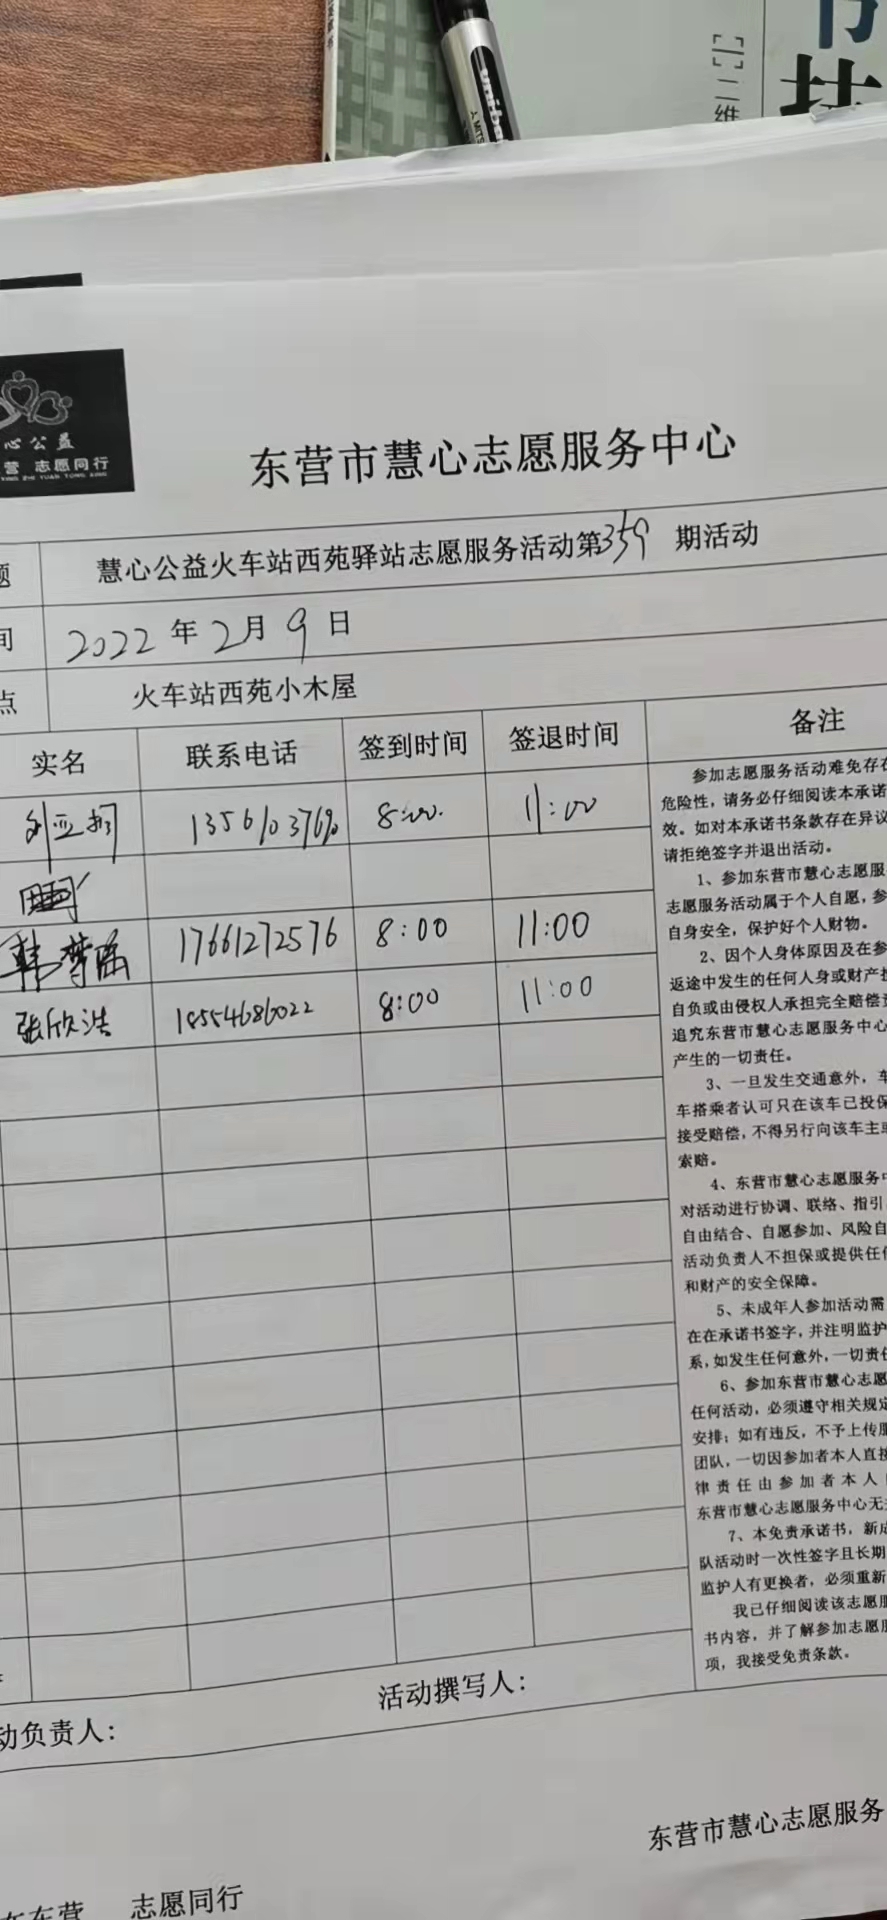 uni-ba
二维
心公益
营 志愿同行
东营市慧心志愿服务中心
题 慧心公益火车站西苑驿站志愿服务活动第359期活动
间 2022年2月9日
点 火车站西苑小木屋
实名 联系电话 签到时间 签退时间 备注
刘亚 8:00. 11:00
韩梦瑶 17661272576 8:00 11:00
张欣浩 18554686022 8:00 11:00
参加志愿服务活动难免存在
危险性，请务必仔细阅读本承诺
效。如对本承诺书条款存在异议
请拒绝签字并退出活动。
1、参加东营市慧心志愿服
志愿服务活动属于个人自愿，参
自身安全，保护好个人财物。
2、因个人身体原因及在参
返途中发生的任何人身或财产损
自负或由侵权人承担完全赔偿责
追究东营市慧心志愿服务中心
产生的一切责任。
3、一旦发生交通意外，车
车搭乘者认可只在该车已投保
接受赔偿，不得另行向该车主或
索赔。
4、东营市慧心志愿服务中
对活动进行协调、联络、指引
自由结合、自愿参加、风险自
活动负责人不担保或提供任何
和财产的安全保障。
5、未成年人参加活动需
在在承诺书签字，并注明监护
系，如发生任何意外，一切责任
6、参加东营市慧心志愿
任何活动，必须遵守相关规定
安排；如有违反，不予上传服
团队，一切因参加者本人直接
律责任由参加者本人
东营市慧心志愿服务中心无
7、本免责承诺书，新成
队活动时一次性签字且长期
监护人有更换者，必须重新
我已仔细阅读该志愿服
书内容，并了解参加志愿服
项，我接受免责条款。
动负责人： 活动撰写人：
东营市慧心志愿服务
东营 志愿同行